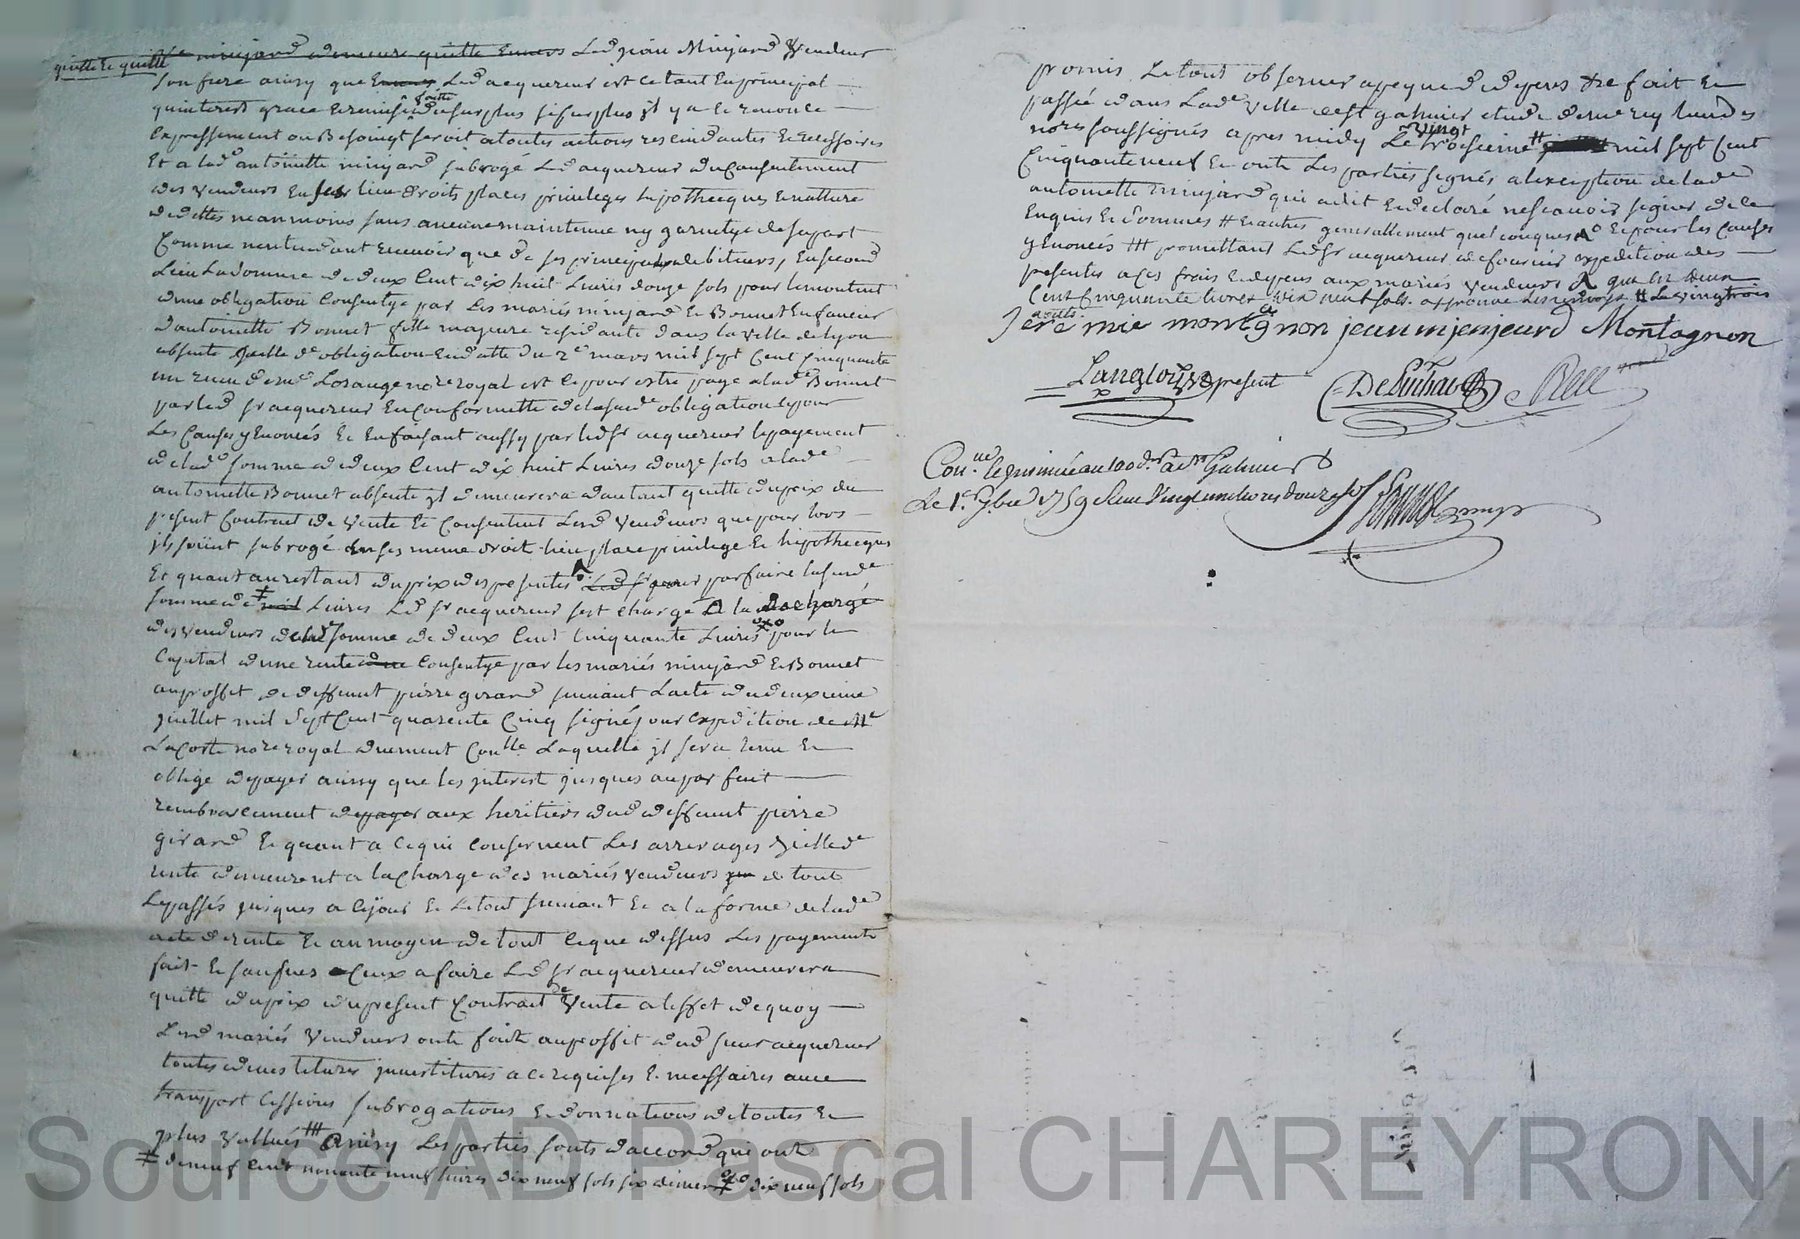 quitte et quitte
demeure quitte envers Led jean Minjard Vendeur
son frere ainsy que Led acquereur est cetant En principal
quinterest grace Et remise faitte du surplus si surplus il y a Et renonce
Expressement ou Besoingt seroit a toutes actions rescindantes Et rescissoires
Et a lade antoinette minjard subrogé Led acquereur du Consentement
des vendeurs En ses lieu droits places privileges hypothecques Et nature
de dettes neanmoins sans aucune maintenue ny garentye de sa part
Comme nentendant Recevoir que de ses principaux debiteurs, En second
Lieu La somme de deux Cent dix huit Livres douze sols pour le montant
dune obligation Consentye par Les mariés minjard Et Bonnet En faveur
dantoinette Bonnet fille majeure residante dans la ville de lyon
absente Laelle de obligation En datte du 2e mars mil sept Cent Cinquante
un recu de me Losange nore royal est Et pour estre payé a lade Bonnet
par led sr acquereur En Conformitté de lasude obligation Et pour
Les Causes y Enoncés Et En faisant aussy par led sr acquereur le payement
de lade somme de deux Cent dix huit Livres douze sols a lade
antoinette Bonnet absente jl demeurera dautant quitte du prix du
present Contract de vente Et Consentent Lesd vendeurs que pour lors
jl soient subrogé En ses meme droit lieu place privilege Et hipothecques
Et quant au restant du prix des presentes Led sr pour parfaire lasusde
somme de mil Livres Led sr acquereur sest chargé a la décharge
des vendeurs de lad somme de deux Cent Cinquante Livres pour le
Capital dune rente due Consentye par les mariés minjard Et Bonnet
au proffit de deffunt pierre girard suivant Lacte du deuxieme
juillet mil Sept Cent quarente Cinq signé pour Expedition de Me
Lacoste nore royal duement Conlle Laquelle jl sera tenu Et
obligé de payer ainsy que les jnterest jusques au parfait
remboursement de payer aux heritiers dud deffunt pierre
girard Et quant a Ce qui Consernent Les arrerages dicelle de
rente demeurent a la Charge des mariés Vendeurs de tout
Le passés jusques a Ce jour Et Le tout suivant Et a la forme de lade
acte de rente Et au moyen de tout Ce que dessus Les payements
fait Et Ceux a faire Led sr acquereur demeurera
quitte du prix du present Contract de Vente a leffet de quoy
Lesd mariés Vendeurs onts faits au proffit dud sieur acquereur
toutes devestitures jnvestitures a Ce requises Et necessaires avec
transport Cessions subrogations Et donnations de toutes Et
plus Vallues ### Ainsy Les parties sonts daccord que onts
# de neuf Cent nonante neuf livres dix neuf sols six deniers dix neuf sols
promis Le tout observer a peyne de depens &c fait Et
passé dans Lade ville de st galmier etude de
nores soussignés apres midy Le vingt troisieme # mil sept Cent
Cinquante neuf Et onts Les parties signés a lexception de lade
antoinette minjard qui a dit Et declaré ne scavoir signer de ce
Enquis Et Sommés # Et autres generallement quelconques Et pour les Causes
y Enoncés ### promettant Led sr acquereur de fournir expedition des
presentes a ces frais Et depens aux mariés vendeurs
Cent Cinquante livres dix neuf sols. approuvé Les renvoys # Le vingt trois
aoüst.
Jeremie montagnon jean minjeard Montagnon
Langlois present
Conlle au de st Galmier
Le 1er 7bre 1759 Recu Vingt un livres douze sols
Source AD Pascal CHAREYRON